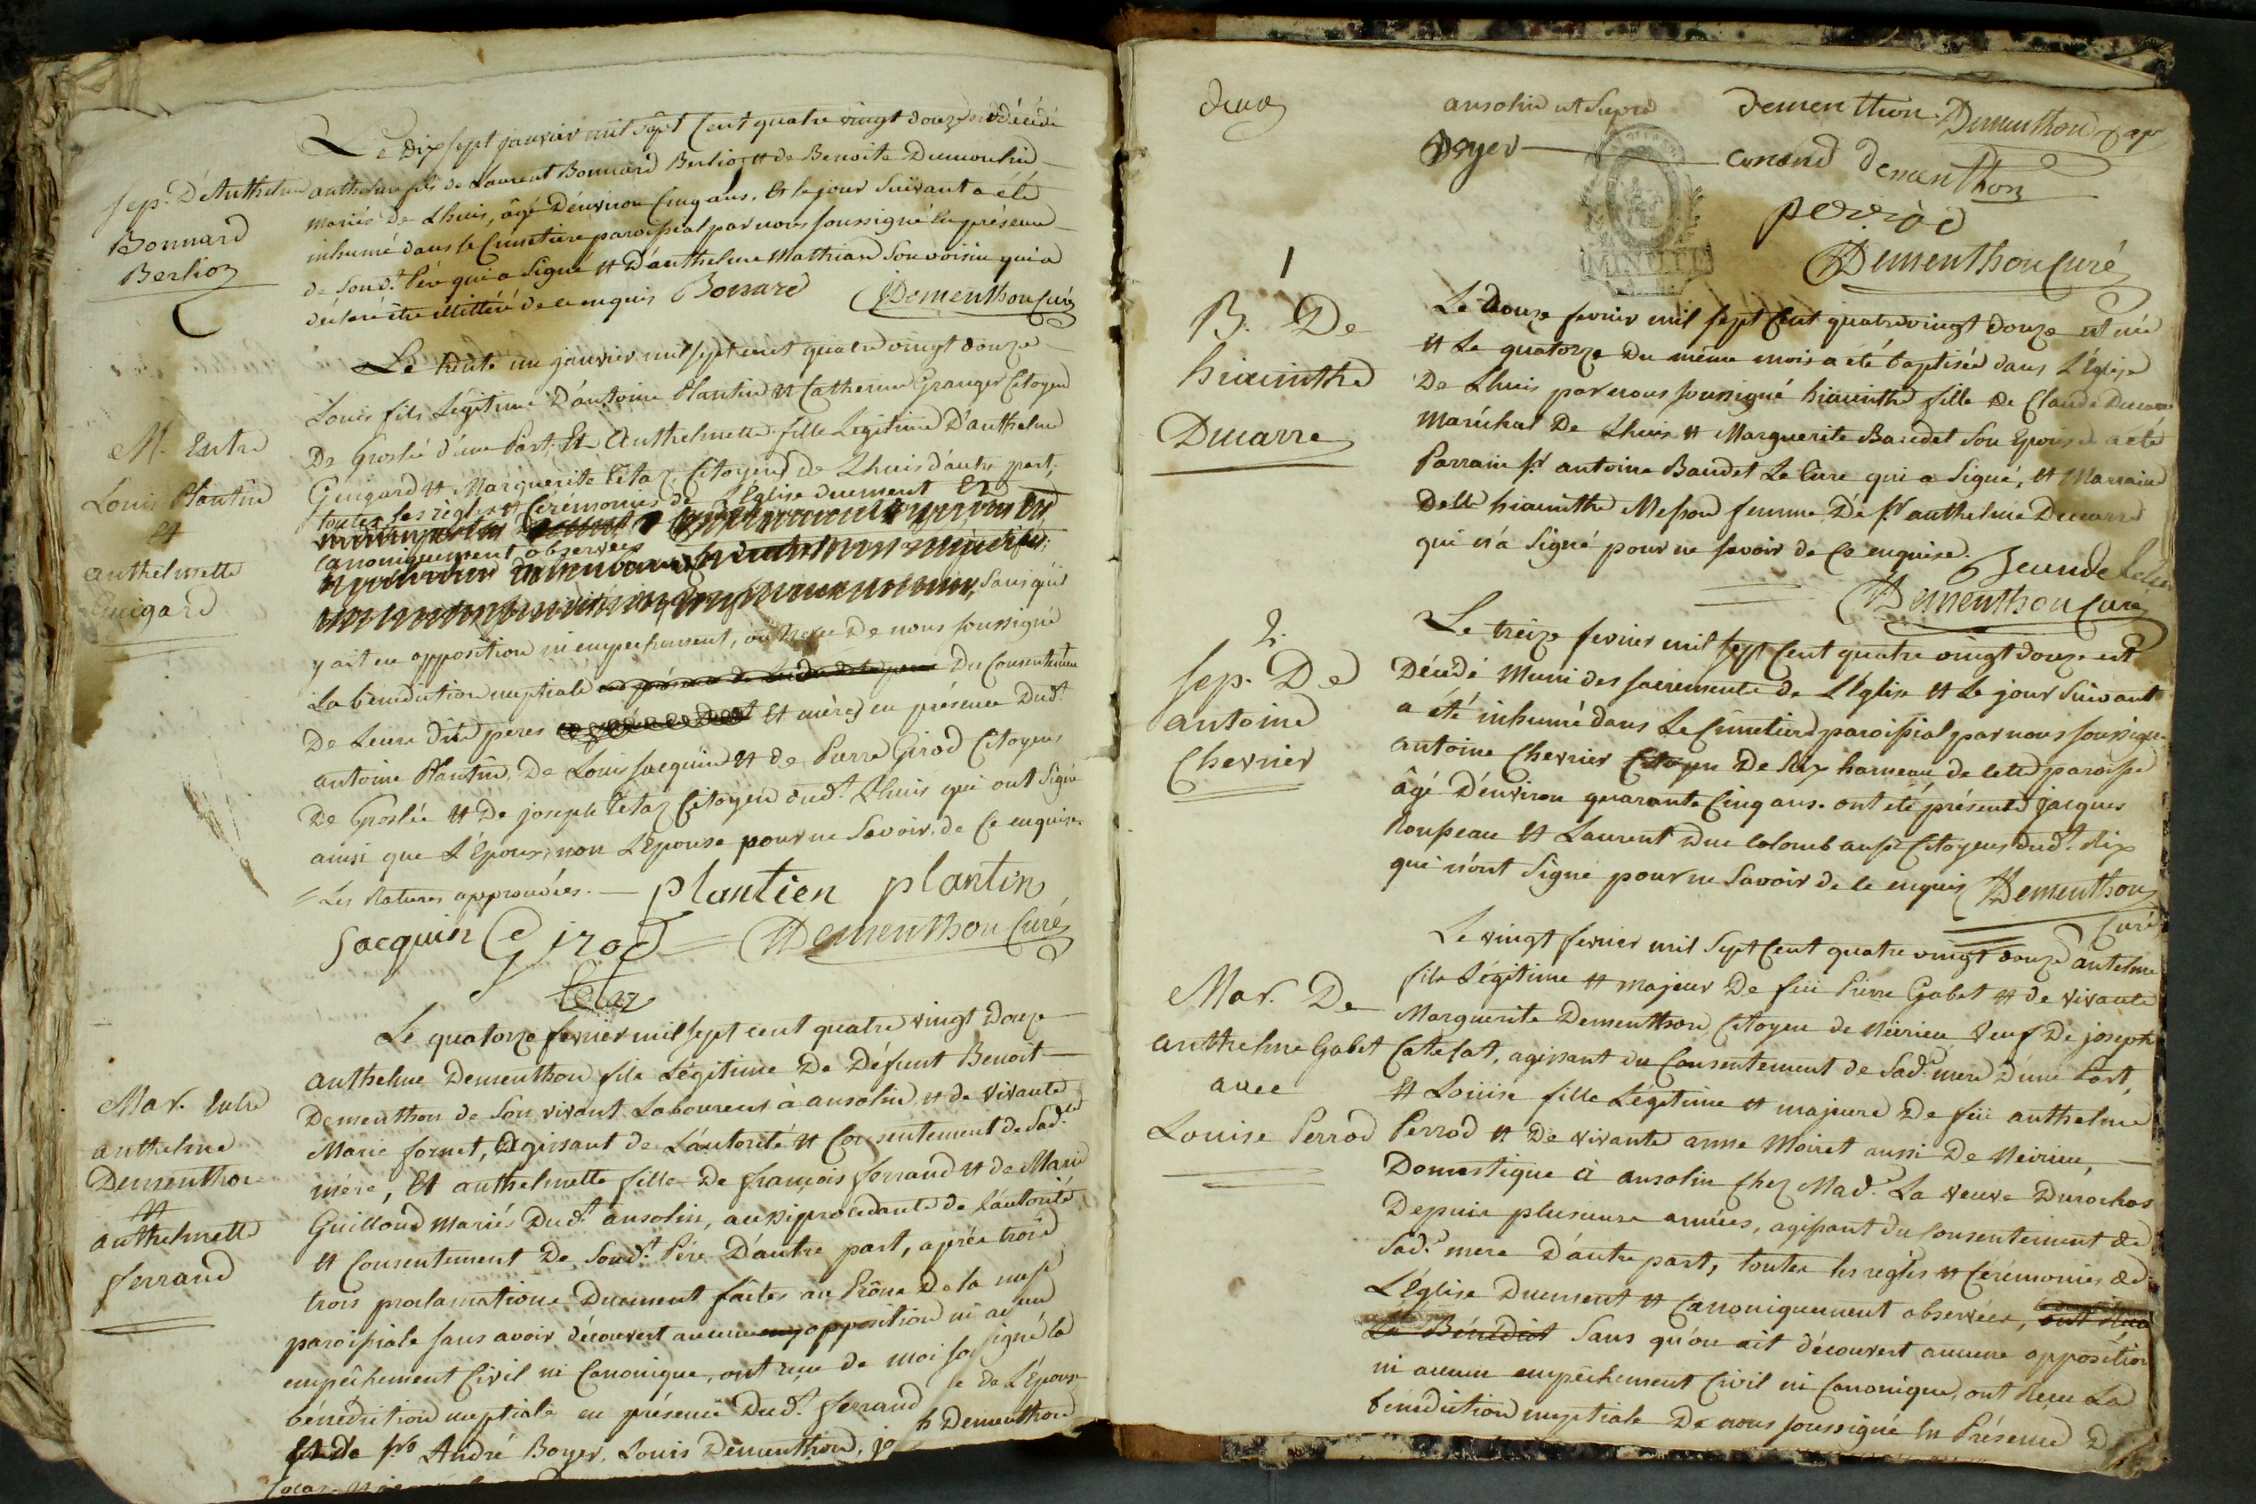 Le dix sept janvier mil sept cent quatre vingt douze est décédé
Sep. D'Anthelme
Bonnard
Berlioz
anthelme fils de Laurent Bonnard Berlioz et de Benoite Dumoulin
mariés de Lhuis, âgé D'environ Cinq ans, Et le jour Suivant a été
inhumé dans le Cimetiere paroissial par nous soussigné En présence
de Sond. Père qui a Signé et D'anthelme Mathian Son voisin qui a
déclaré être illittéré de ce enquis Bonnard Dementhon Curé
M. Entre
Louis Plantin
et
anthelmette
Guigard
Le trente un janvier mil sept cent quatre vingt douze
Louis fils Légitime D'antoine Plantin et Catherine Granger Citoyens
De Groslée d'une Part, Et Anthelmette fille Légitime D'anthelme
Guigard et Marguerite Tétaz Citoyens de Lhuis d'autre part,
toutes les règles et Cérémonies de L'Église duement Et
canoniquement observées
Sans qu'il
y ait eu opposition ni empechement, ont Reçu De nous soussigné
La bénédiction nuptiale Du Consentement
De Leurs dits peres Et mères en présence Dud.
antoine Plantin, De Louis Jacquin et de Pierre Girod Citoyens
De Groslée et De joseph Tétaz Citoyen dud. Lhuis qui ont Signé
ainsi que L'Epoux, non L'Epouse pour ne Savoir de Ce enquise.
Les Ratures approuvées. — plantien plantin
Jacquin Girod Dementhon Curé
tétaz
Mar. Entre
anthelme
Dementhon
et
anthelmette
ferrand
Le quatorze fevrier mil sept cent quatre vingt Douze
anthelme Dementhon fils Légitime De Défunt Benoit
Dementhon de Son vivant Laboureur à ansolin et de vivante
Marie fornet, Agissant de L'autorité et Consentement de Sad.
mère, Et anthelmette fille De françois ferrand et de Marie
Guilloud Mariés Dud. ansolin, aussi procedante de L'autorité
et Consentement De Sond. Père D'autre part, après trois
trois proclamations Duement faites au Prône De la messe
paroissiale sans avoir découvert aucune opposition ni aucun
empêchement Civil ni Canonique, ont reçu de moi soussigné la
bénédiction nuptiale en présence Dud. ferrand de L'Epouse
Et De srs André Boyer, Louis Dementhon, Dementhon
deux
ansolin ut Supra dementhon Dementhon
Boyer conand dementhon
perrod
Dementhon Curé
MINUTE
1
B. De
hiacinthe
Ducarre
Le douze fevrier mil sept Cent quatre vingt douze est née
et Le quatorze Du même mois a été baptisée dans L'Église
De Lhuis par nous soussigné hiacinthe fille de Claude Ducarre
Maréchal De Lhuis et Marguerite Baudet Son Epouse a été
Parrain sr antoine Baudet qui a Signé, et Marraine
Delle hiacinthe femme De sr anthelme Ducarre
qui n'a Signé pour ne savoir de Ce enquise.
Dementhon Curé
2.
Sep. De
antoine
Chevrier
Le treize fevrier mil sept Cent quatre vingt douze est
Décédé Muni des sacrements de L'Église et Le jour Suivant
a été inhumé dans Le Cimetiere paroissial par nous soussigné
antoine Chevrier Citoyen De Rix hameau de cette paroisse
âgé D'environ quarante Cinq ans. ont été présents jacques
Rousseau et Laurent Duc Colomb aussi Citoyens dud. Rix
qui n'ont Signé pour ne Savoir de ce enquis Dementhon
Curé
Mar. De
anthelme Gabet
avec
Louise Perrod
Le vingt fevrier mil Sept Cent quatre vingt douze antelme
fils Légitime et majeur De feu Pierre Gabet et de vivante
Marguerite Dementhon Citoyen de Meirieu, Veuf De joseph
Catelat, agissant du Consentement de Sad. mere D'une Part,
et Louise fille Légitime et majeure De feu anthelme
Perrod et De vivante anne Moiret aussi De Meirieu,
Domestique à ansolin Chez Mad. La Veuve Durochas
Depuis plusieurs années, agissant du Consentement de
Sad. mere D'autre part, toutes les regles et Cérémonies de
L'Église Duement et Canoniquement observées,
La Bénédict Sans qu'on ait découvert aucune opposition
ni aucun empêchement Civil ni Canonique, ont Reçu La
bénédiction nuptiale De nous soussigné En Présence